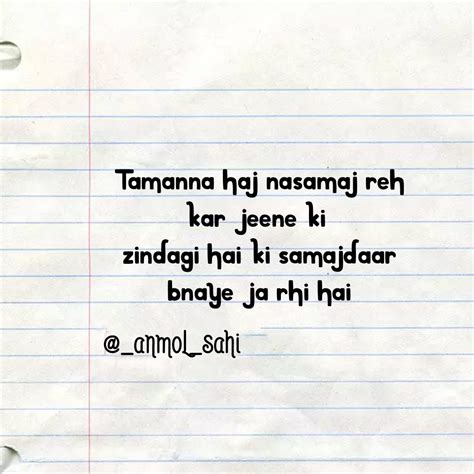 Tamanna haj nasamaj reh
kar jeene ki
zindagi hai ki samajdaar
bnaye ja rhi hai
@_anmol_sahi